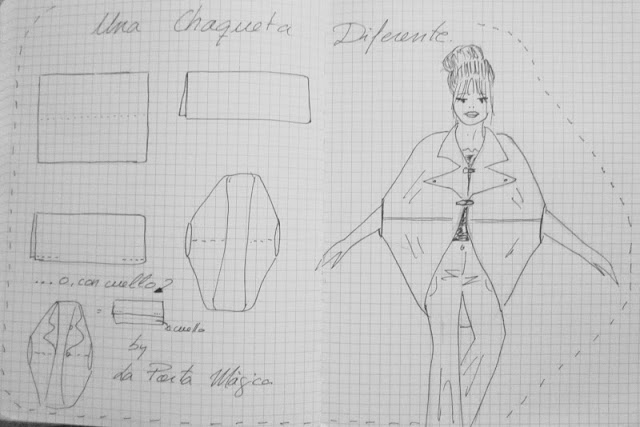 Una Chaqueta Diferente.
... o, con cuello?
= cuello
by
La Porta Mágica